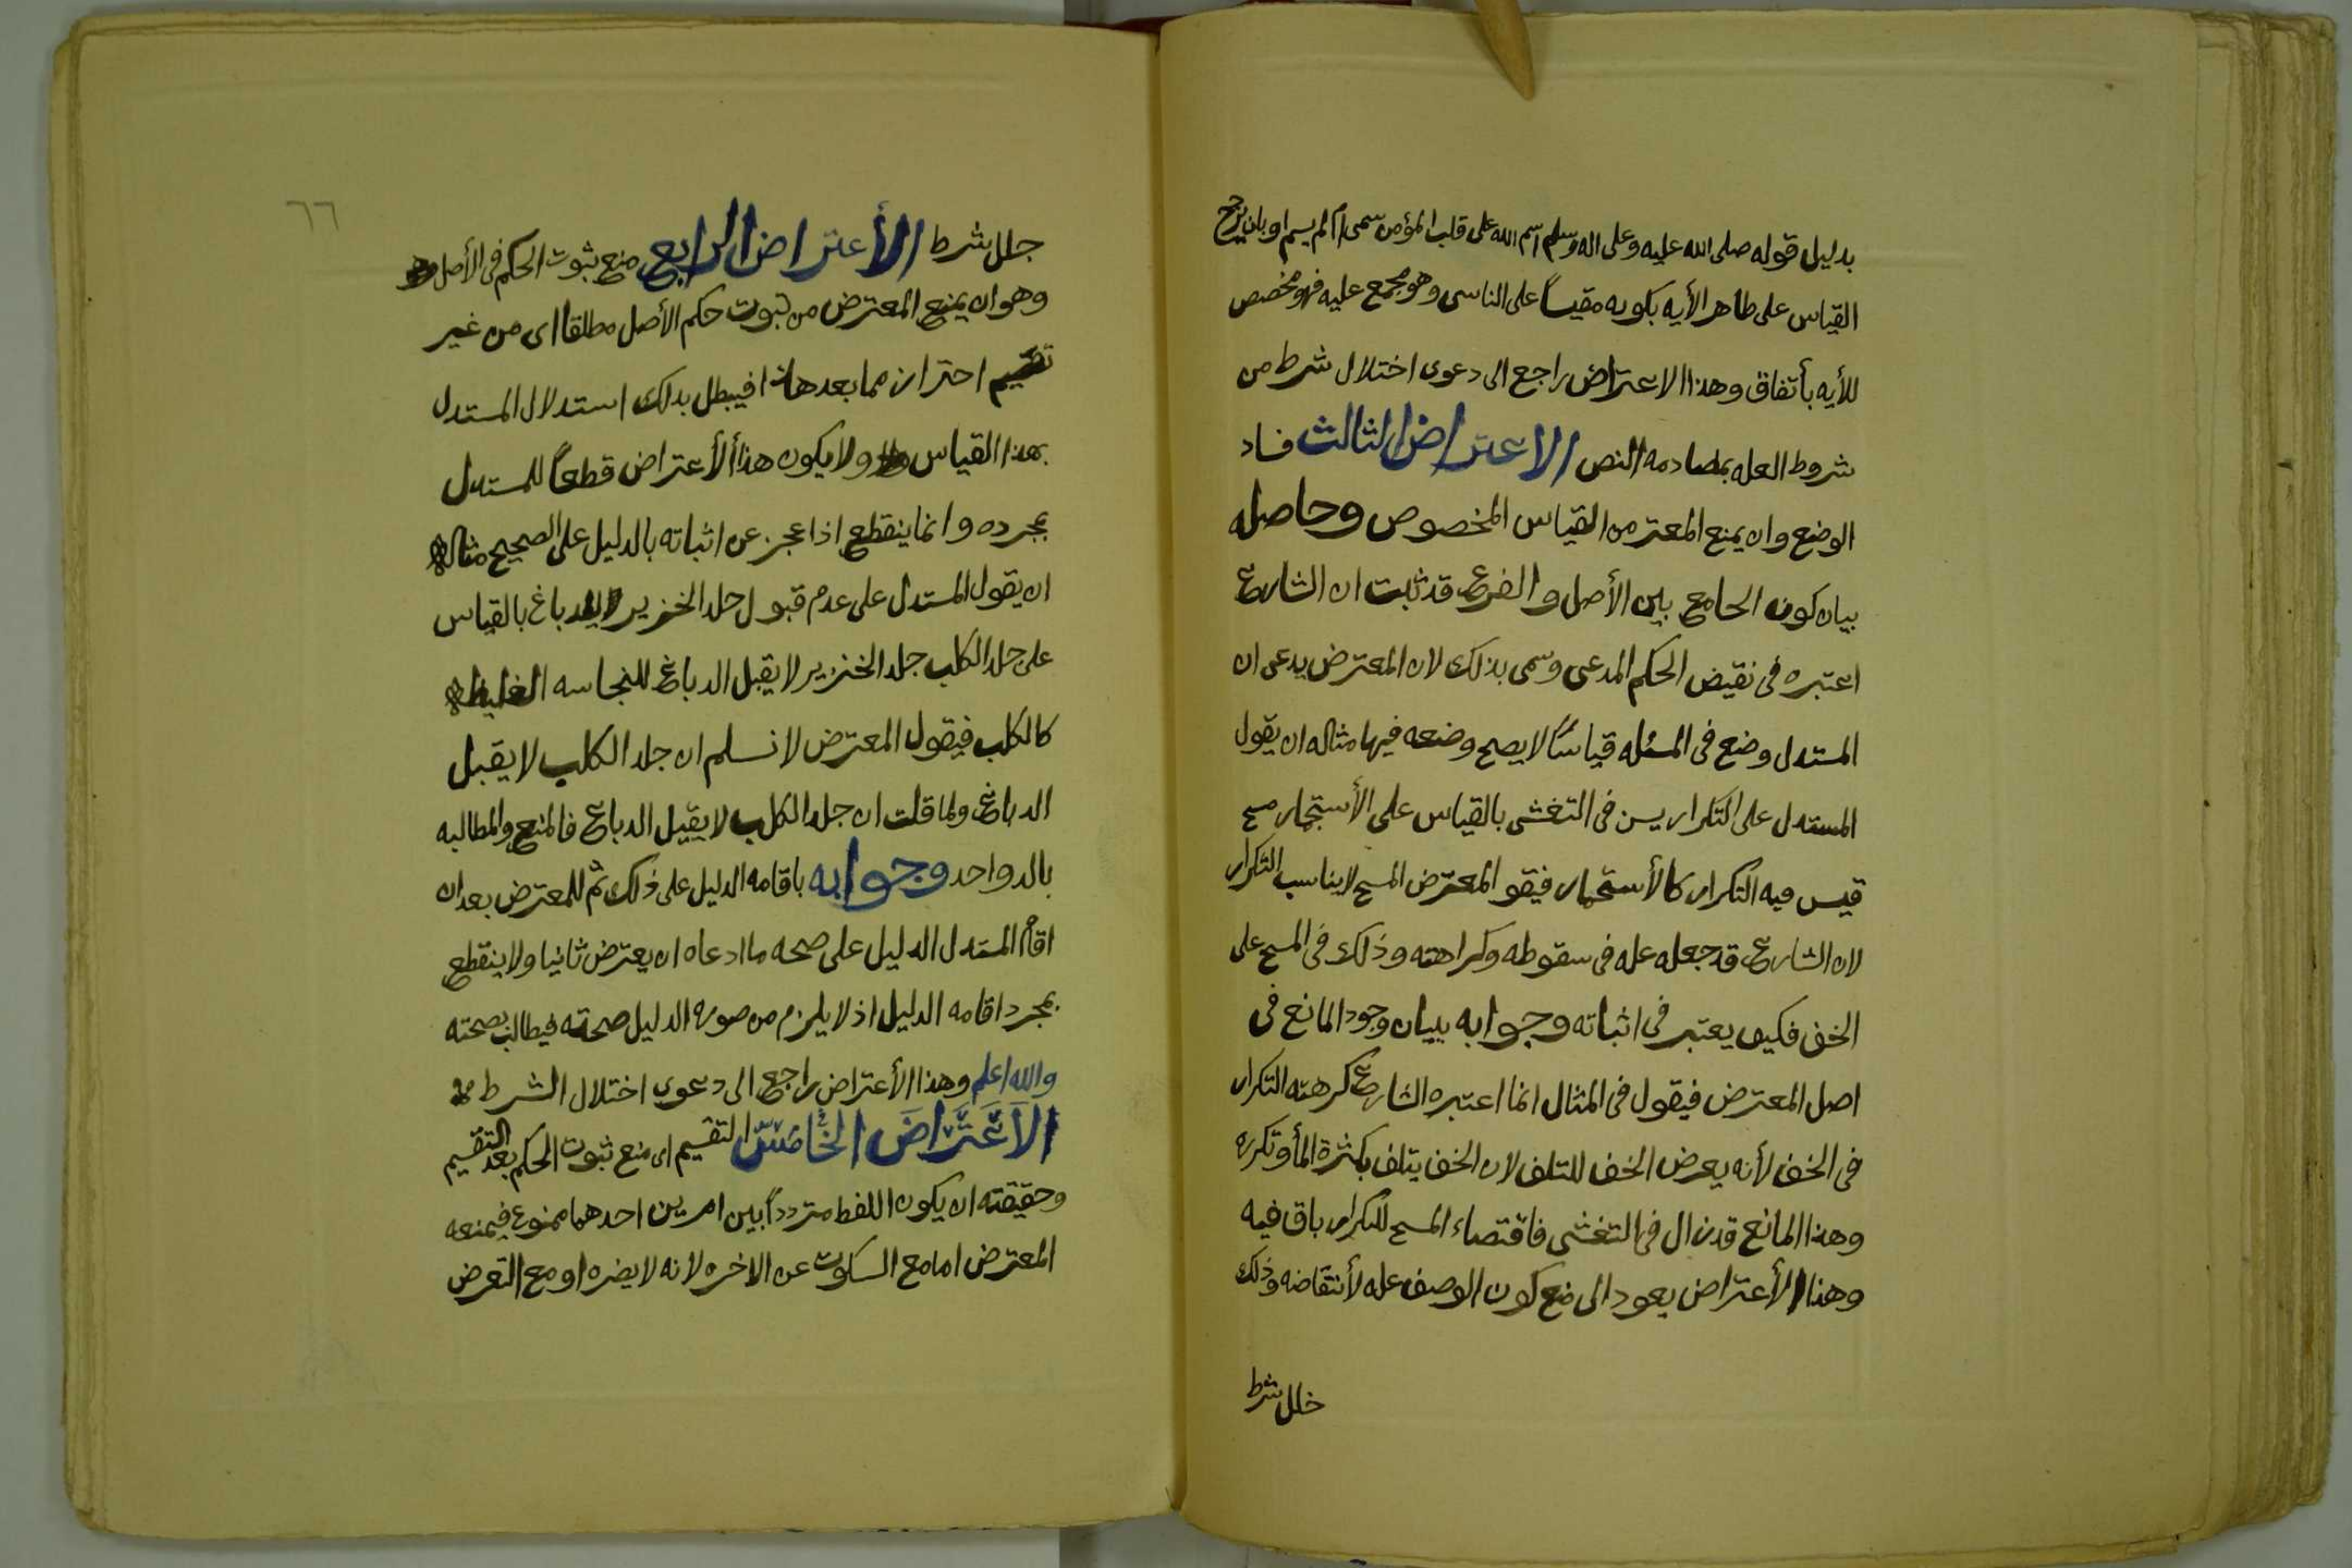 بدليل قوله صلى الله عليه وعلى اله وسلم اسم الله على قلب المؤمن سمى ام لم يسم او بان يرجح
القياس على ظاهر الأيه بكونه مقيساً على الناسى وهو مجمع عليه فهو مخصص
للأيه بأتفاق وهذا الاعتراض راجع الى دعوى اختلال شرط من
شروط العله بمصادمه النص الاعتراض الثالث فساد
الوضع وان يمنع المعتر من القياس المخصوص وحاصله
بيان كون الجامع بين الأصل والفرع قد ثبت ان الشارع
اعتبره فى نقيض الحكم المدعى وسمى بذلك لان المعترض يدعى ان
المستدل وضع فى المسئله قياسًا لا يصح وضعه فيها مثاله ان يقول
المستدل على التكرار يسن فى التغشى بالقياس على الأستجمار مسح
قيس فيه التكرار كالأستجمار فيقو المعترض المسح لا يناسب التكرار
لان الشارع قد جعله عله فى سقوطه وكراهته وذلك فى المسح على
الخف فكيف يعتبر فى اثباته وجوابه ببيان وجود المانع فى
اصل المعترض فيقول فى المثال انما اعتبره الشارع كرهته التكرار
فى الخف لأنه يعرض الخف للتلف لان الخف يتلف بكثرة المأ وتكرره
وهذا المانع قد زال فى التغشى فاقتضاء المسح للتكرار باق فيه
وهذا الأعتراض يعود الى منع كون الوصف عله لأنتقاضه وذلك
خلل شرط
٦٦
جلل شرط الأعتراض الرابع منع ثبوت الحكم فى الأصل
وهو ان يمنع المعترض من ثبوت حكم الأصل مطلقا اى من غير
تقسيم احتراز مما بعدها فيبطل بذلك استدلال المستدل
بهذا القياس ولا يكون هذا الأعتراض قطعاً للمستدل
بمجرده وانما ينقطع اذا عجز عن اثباته بالدليل على الصحيح مثاله
ان يقول المستدل على عدم قبول جلد الخنزير للدباغ بالقياس
على جلد الكلب جلد الخنزير لا يقبل الدباغ للنجاسه الغليظه
كالكلب فيقول المعترض لا نسلم ان جلد الكلب لا يقبل
الدباغ ولما قلت ان جلد الكلب لا يقبل الدباغ فالمنع والمطالبه
بالد واحد وجوابه باقامه الدليل على ذلك ثم للمعترض بعد ان
اقام المستدل الدليل على صحه ما ادعاه ان يعترض ثانيا ولا ينقطع
بمجرد اقامه الدليل اذ لا يلزم من صوره الدليل صحته فيطالب بصحته
والله اعلم وهذا الأعتراض راجع الى دعوى اختلال الشرط
الأعتراض الخامس التقسيم اى منع ثبوت الحكم بعد التقسيم
وحقيقته ان يكون اللفظ مترددًا بين امرين احدهما ممنوع فيمنعه
المعترض اما مع السكوت عن الاخره لانه لا يضره او مع التعرض